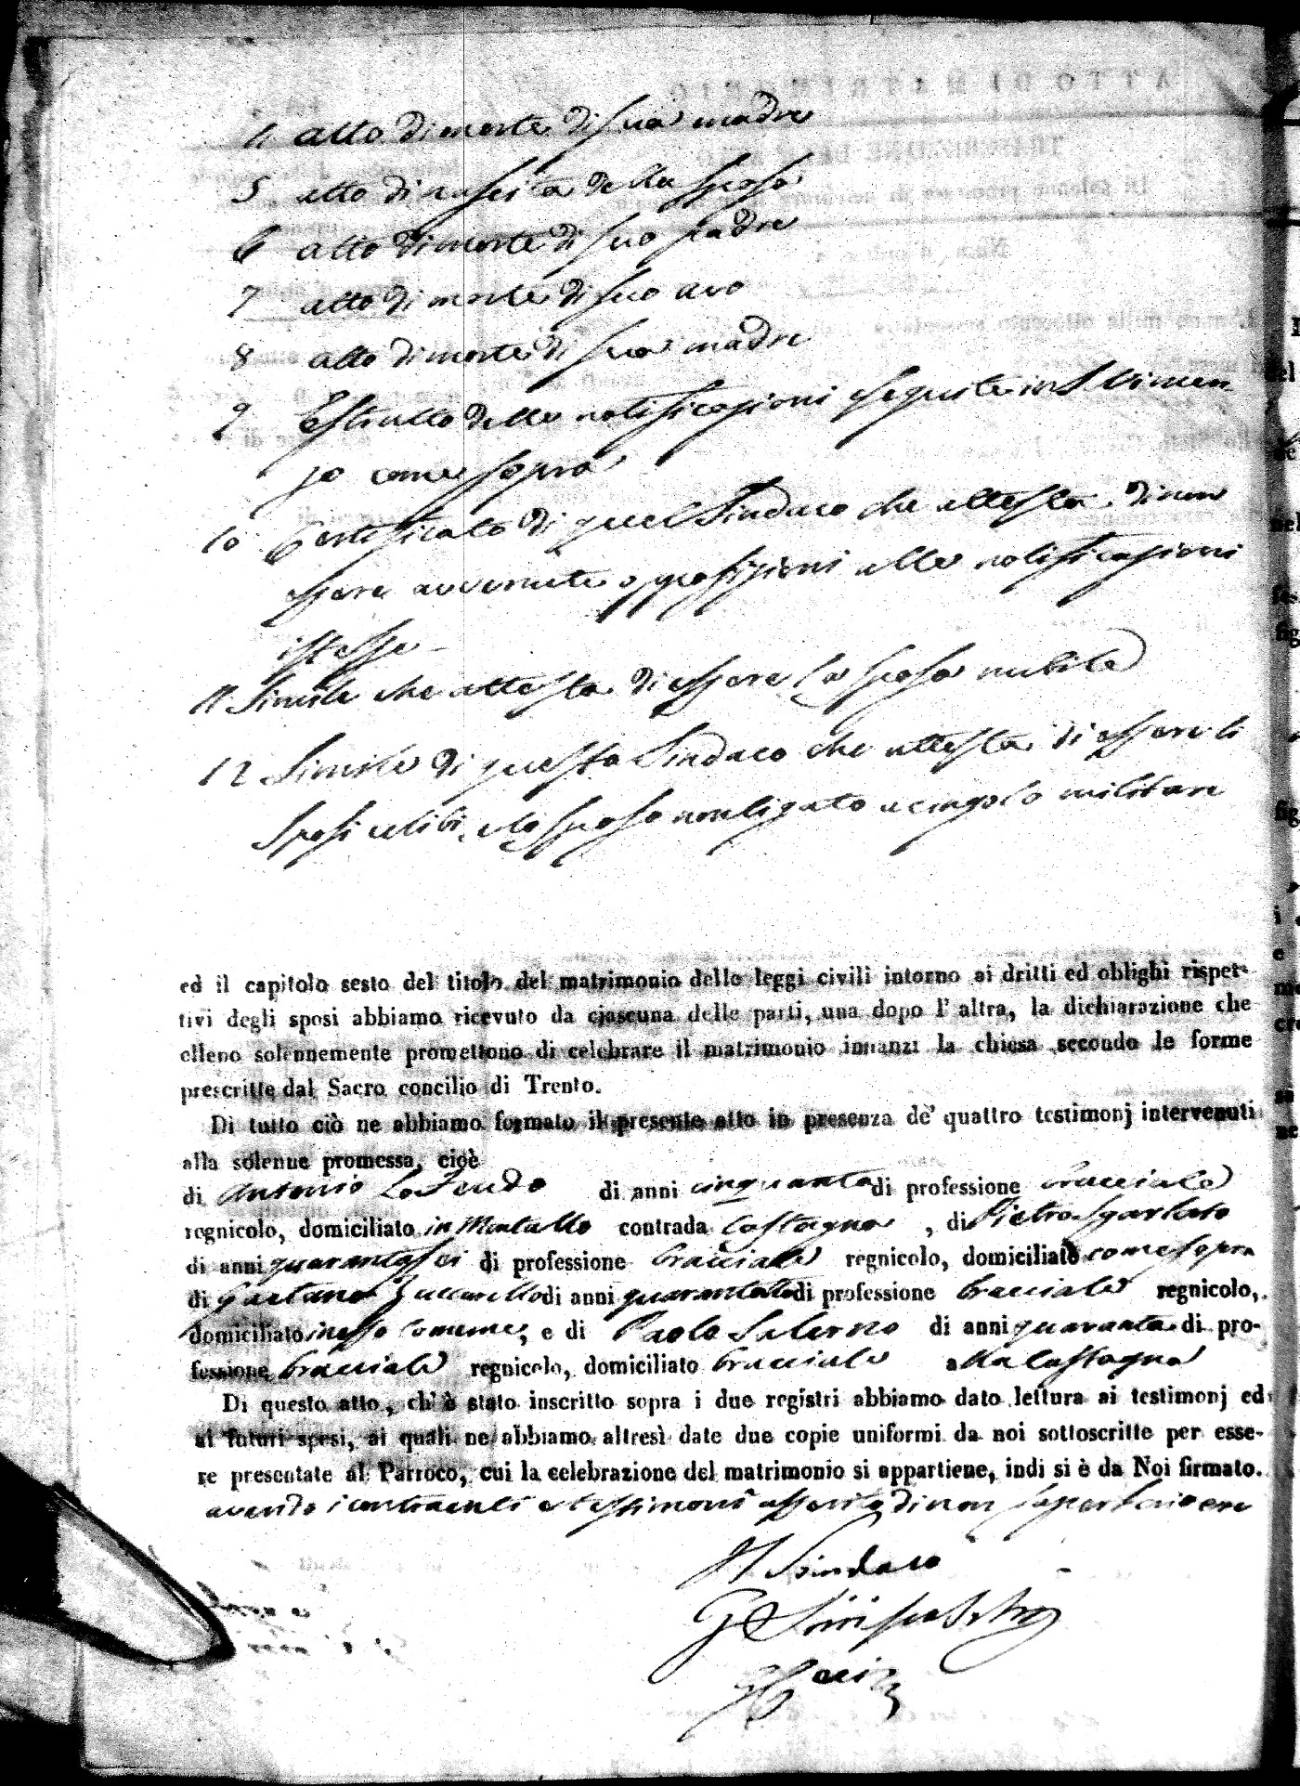 4 atto di morte di sua madre
5 atto di nascita della sposa
6 atto di morte di suo padre
7 atto di morte di suo avo
8 atto di morte di sua madre
9 Estratto delle notificazioni eseguite in S Vincen
zo come sopra
10 Certificato di quel Sindaco che attesta di non
essere avvenute opposizioni alle notificazioni
istesse
11 Simile che attesta di essere la sposa nubile
12 Simile di questo Sindaco che attesta di essere li
Sposi celibi, e lo sposo non ligato a cingolo militare
ed il capitolo sesto del titolo del matrimonio delle leggi civili intorno ai dritti ed oblighi rispet-
tivi degli sposi abbiamo ricevuto da ciascuna delle parti, una dopo l' altra, la dichiarazione che
elleno solennemente promettono di celebrare il matrimonio innanzi la chiesa secondo le forme
prescritte dal Sacro concilio di Trento.
Di tutto ciò ne abbiamo formato il presente atto in presenza de' quattro testimonj intervenuti
alla solenne promessa, cioè
di Antonio Lo Feudo di anni cinquanta di professione bracciale
regnicolo, domiciliato in Montalto contrada Castagna, di Pietro Sgarlato
di anni quarantasei di professione bracciale regnicolo, domiciliato come sopra
di Gaetano Zuccarello di anni quarantotto di professione bracciale regnicolo,
domiciliato in esso comune, e di Paolo Salerno di anni quaranta di pro-
fessione bracciale regnicolo, domiciliato bracciale alla Castagna
Di questo atto, ch' è stato inscritto sopra i due registri abbiamo dato lettura ai testimonj ed
ai futuri sposi, ai quali ne abbiamo altresì date due copie uniformi da noi sottoscritte per esse-
re presentate al Parroco, cui la celebrazione del matrimonio si appartiene, indi si è da Noi firmato.
avendo i contraenti e testimoni asserito di non saper scrivere
Il Sindaco